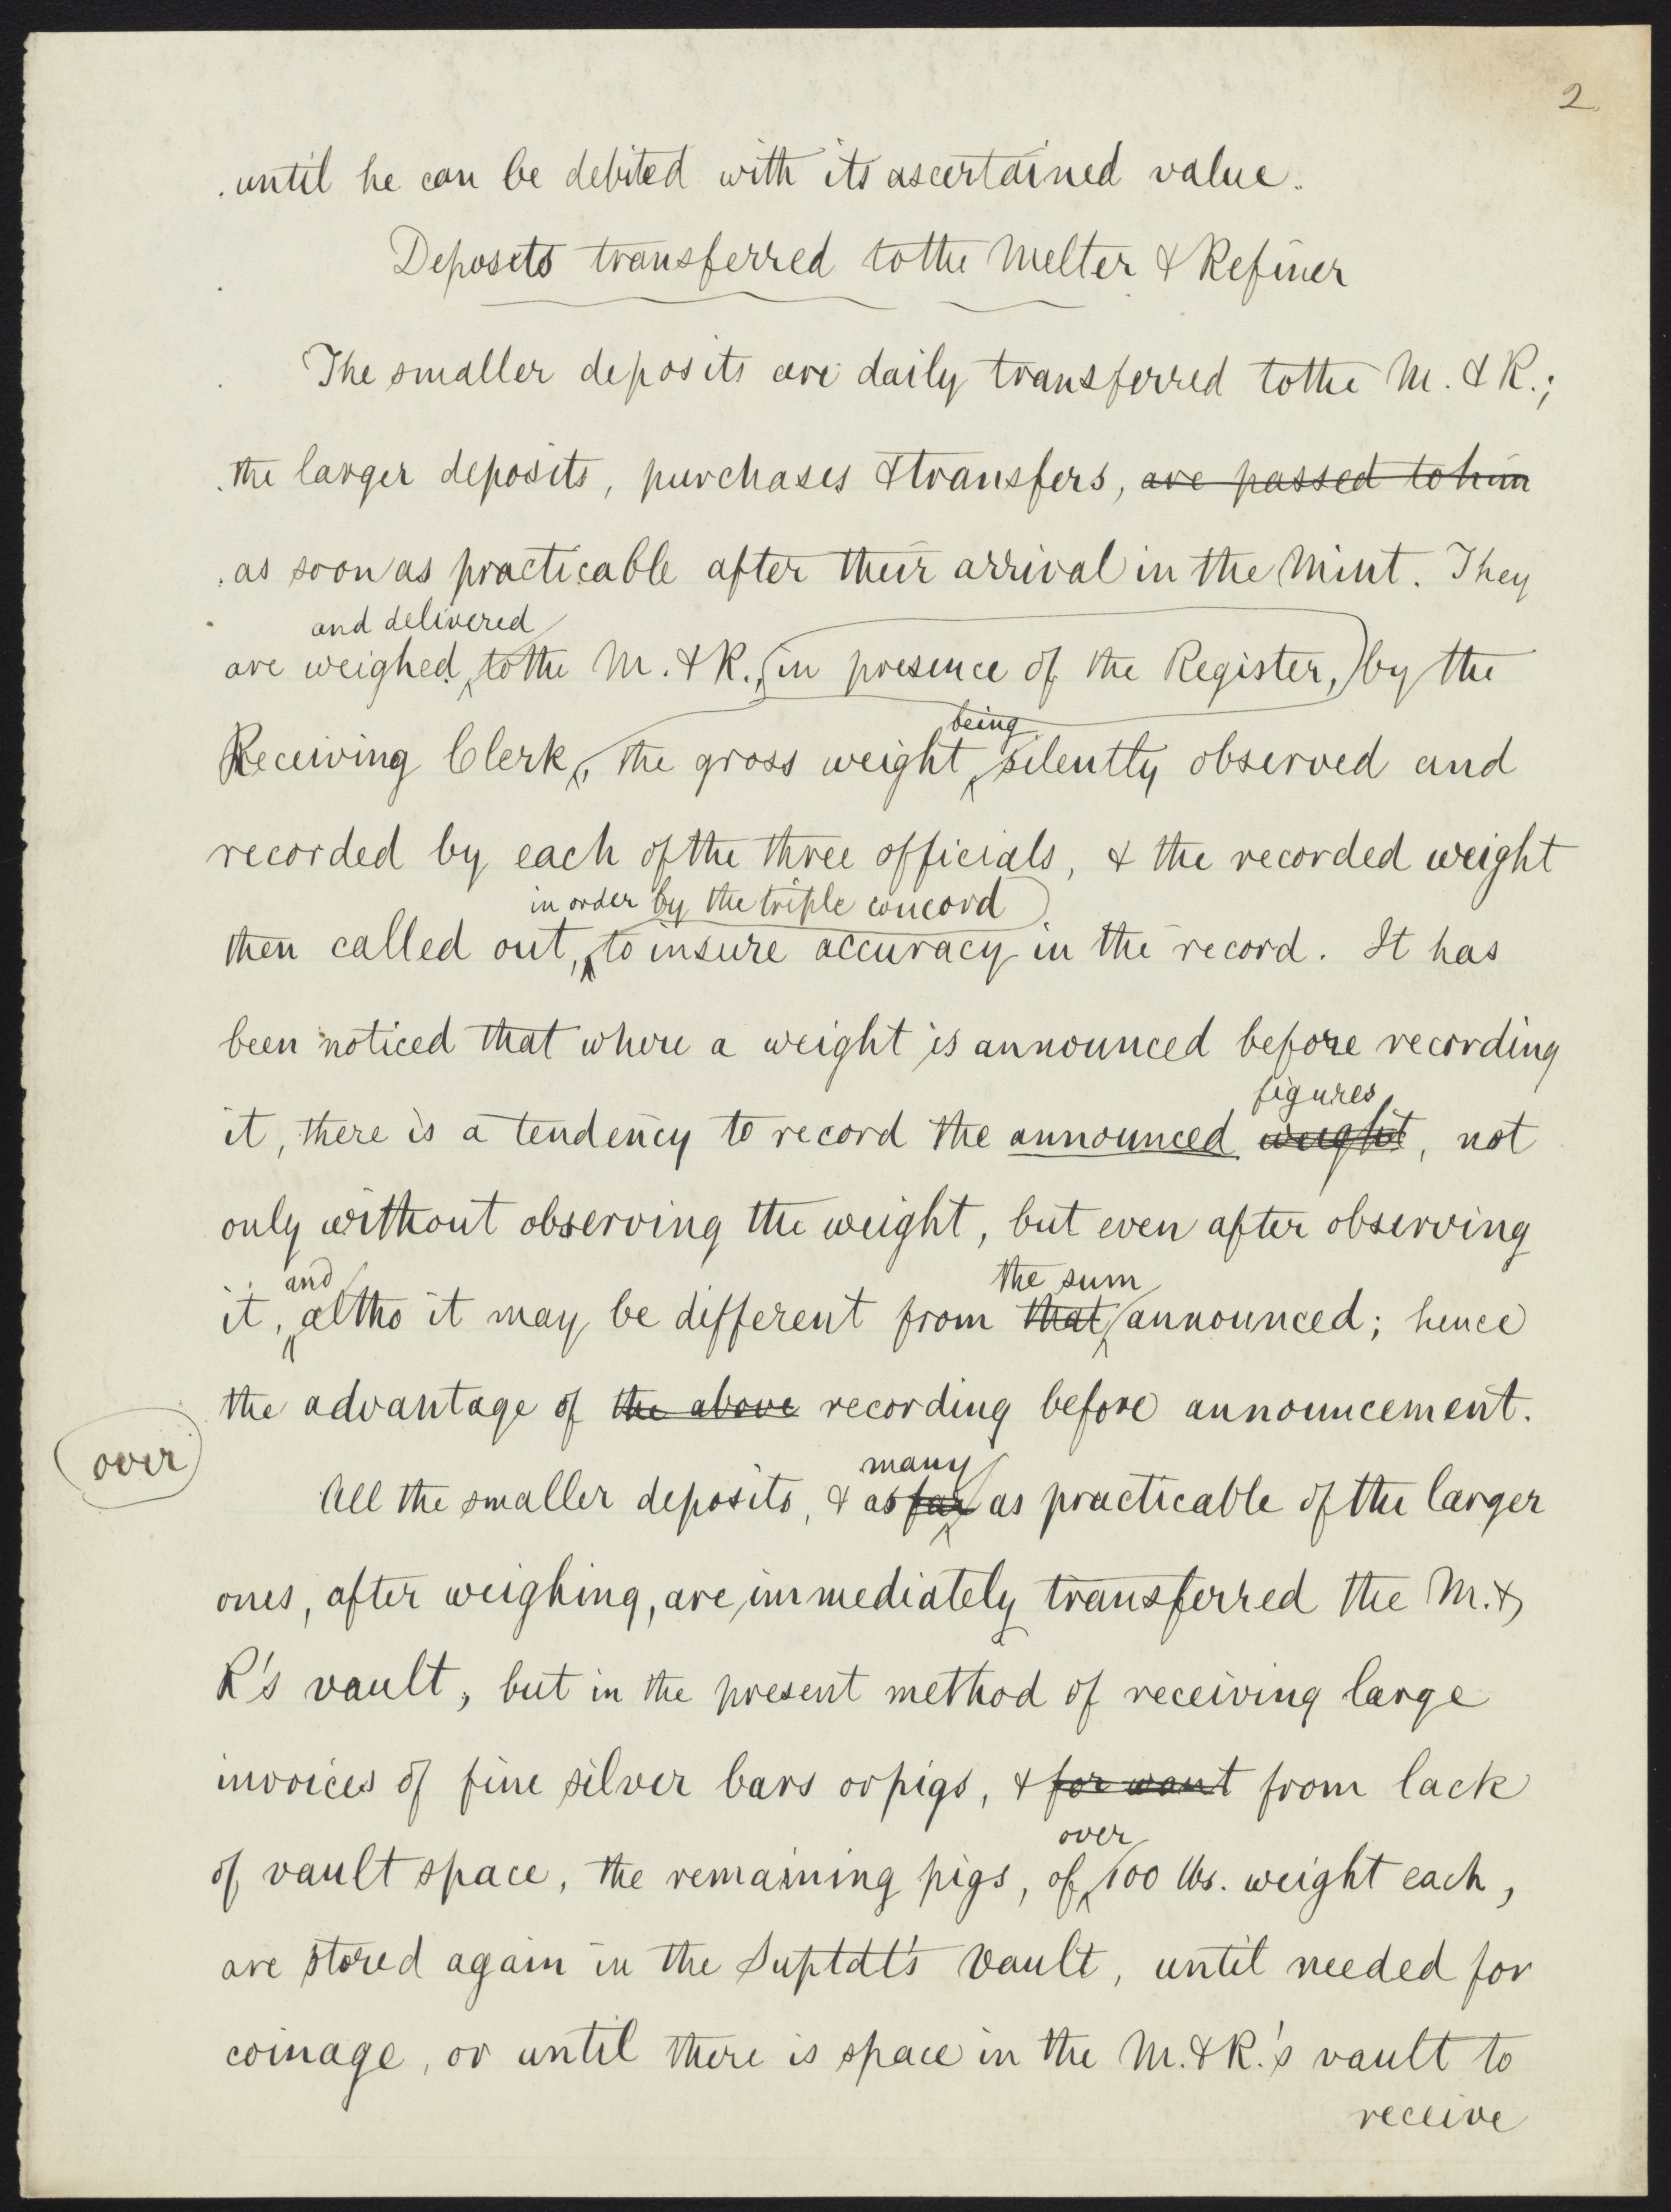 2
until he can be debited with its ascertained value.
Deposits transferred to the Melter & Refiner
The smaller deposits are daily transferred to the M. & R.;
the larger deposits, purchases & transfers, are passed to him
as soon as practicable after their arrival in the Mint. They
and delivered
are weighed, to the M. & R., (in presence of the Register,) by the
being
Receiving Clerk, the gross weight silently observed and
recorded by each of the three officials, & the recorded weight
in order by the triple concord
then called out, to insure accuracy in the record. It has
been noticed that where a weight is announced before recording
figures,
it, there is a tendency to record the announced weight, not
only without observing the weight, but even after observing
and the sum
it, altho it may be different from that announced; hence
the advantage of the above recording before announcement.
over
many
All the smaller deposits, & as far as practicable of the larger
ones, after weighing, are immediately transferred the M. &
R's vault, but in the present method of receiving large
invoices of fine silver bars or pigs, & for want from lack
over
of vault space, the remaining pigs, of 100 lbs. weight each,
are stored again in the Suptdt's vault, until needed for
coinage, or until there is space in the M. & R.'s vault to
receive